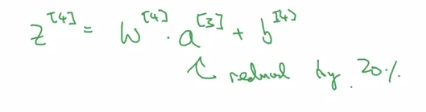 z^[4] = W^[4] · a^[3] + b^[4]
↑ reduced by 20%